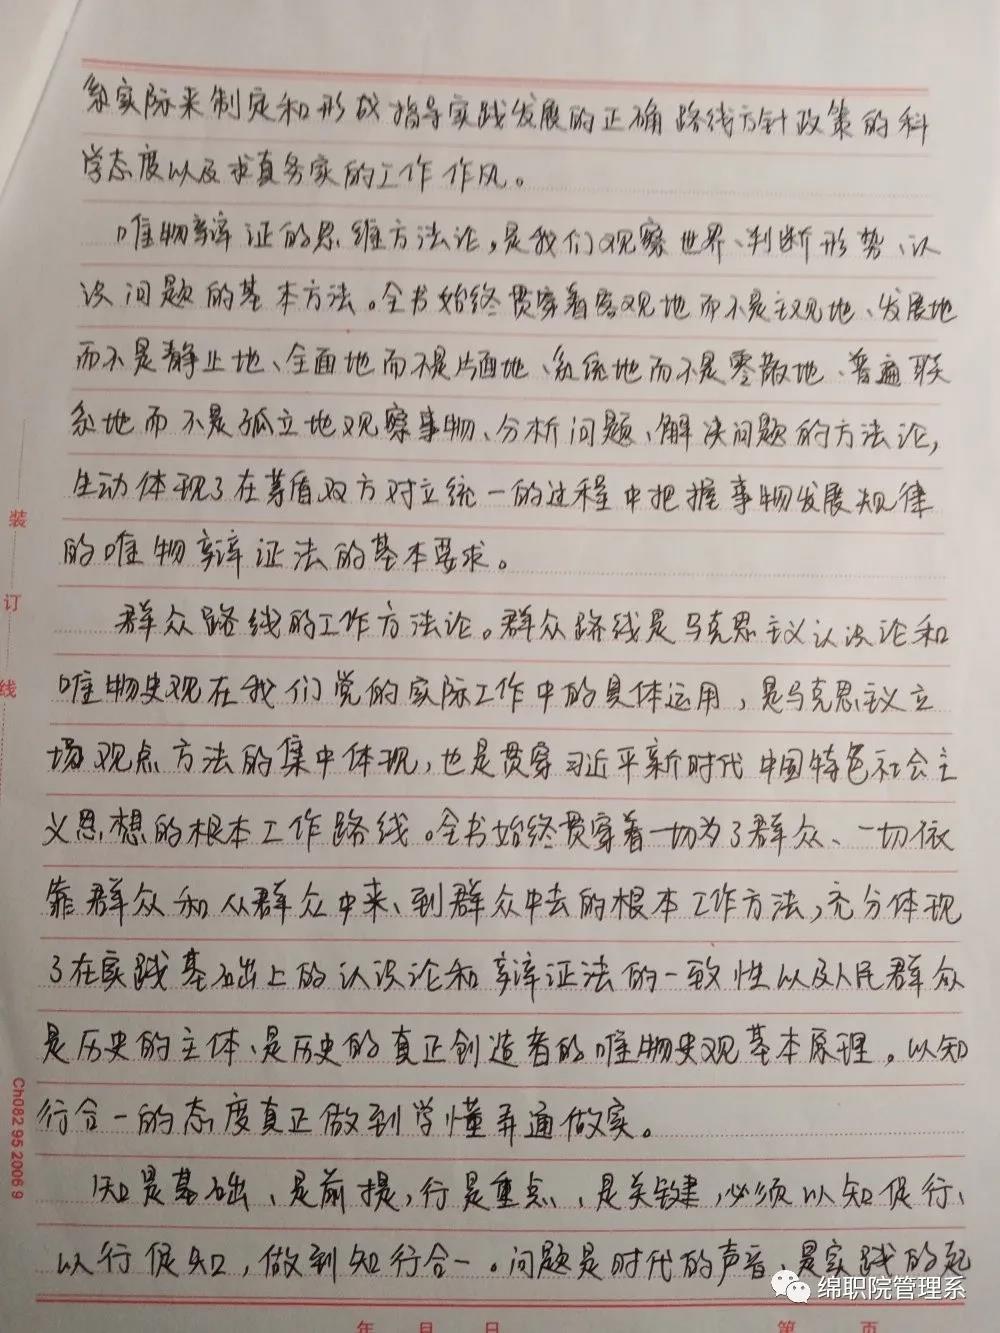 系实际来制定和形成指导实践发展的正确路线方针政策的科
学态度以及求真务实的工作作风。
唯物辩证的思维方法论,是我们观察世界、判断形势、认
识问题的基本方法。全书始终贯穿着客观地而不是主观地、发展地
而不是静止地、全面地而不是片面地、系统地而不是零散地、普遍联
系地而不是孤立地观察事物、分析问题、解决问题的方法论,
生动体现了在矛盾双方对立统一的过程中把握事物发展规律
的唯物辩证法的基本要求。
群众路线的工作方法论。群众路线是马克思主义认识论和
唯物史观在我们党的实际工作中的具体运用,是马克思主义立
场观点方法的集中体现,也是贯穿习近平新时代中国特色社会主
义思想的根本工作路线。全书始终贯穿着一切为了群众、一切依
靠群众和从群众中来、到群众中去的根本工作方法,充分体现
了在实践基础上的认识论和辩证法的一致性以及人民群众
是历史的主体、是历史的真正创造者的唯物史观基本原理。以知
行合一的态度真正做到学懂弄通做实。
知是基础、是前提,行是重点、是关键,必须以知促行、
以行促知,做到知行合一。问题是时代的声音、是实践的起
装
订
线
Ch082 95 2006 9
绵职院管理系
年 月 日 第 页